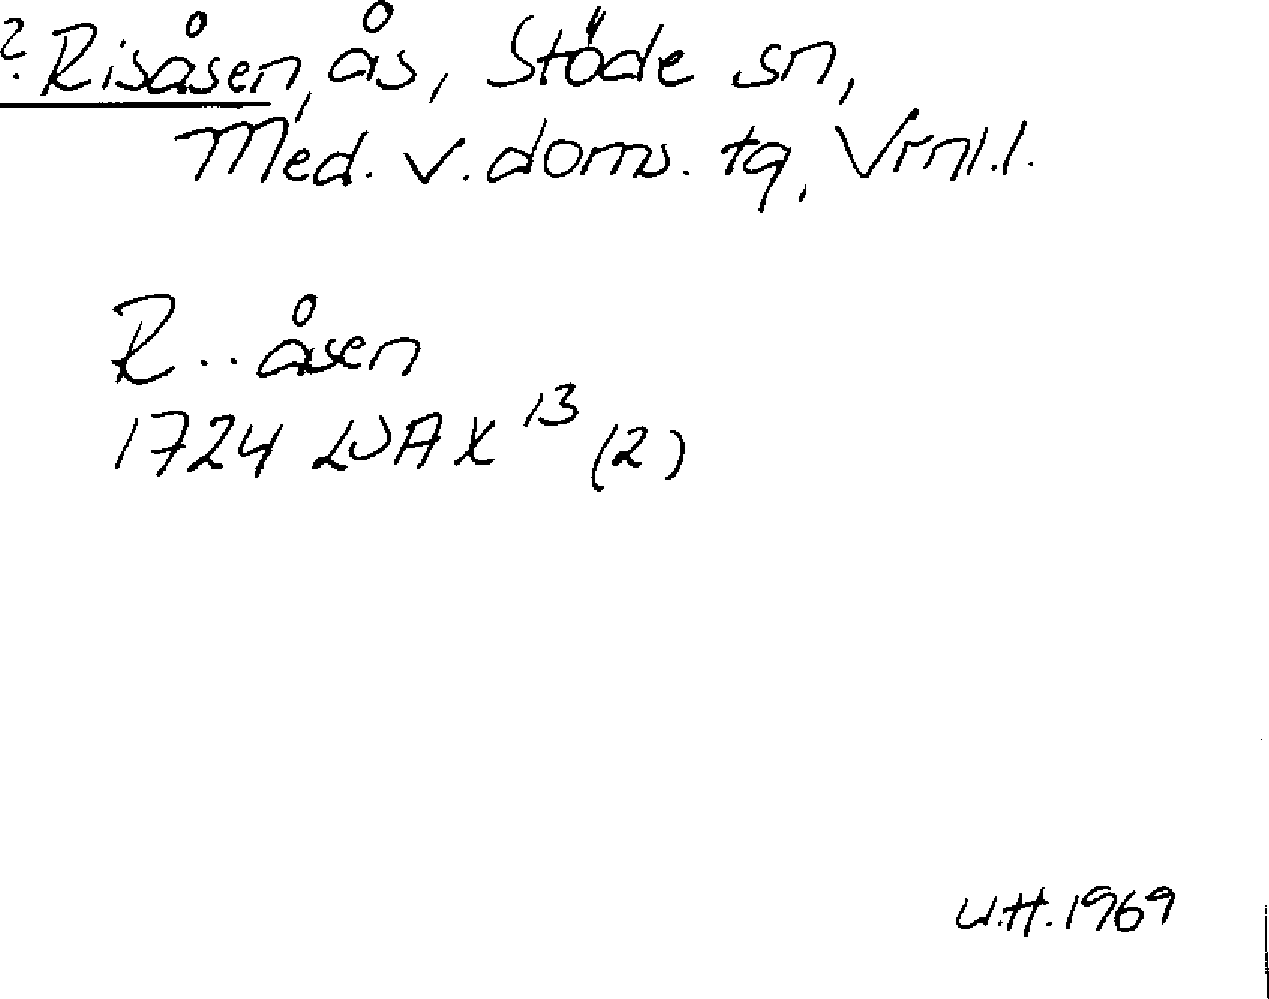 ? Risåsen, ås, Stöde sn,
Med. v. doms. tg, Vrnl.l.
R..åsen
1724 LSA X 13 (2)
U.H. 1969